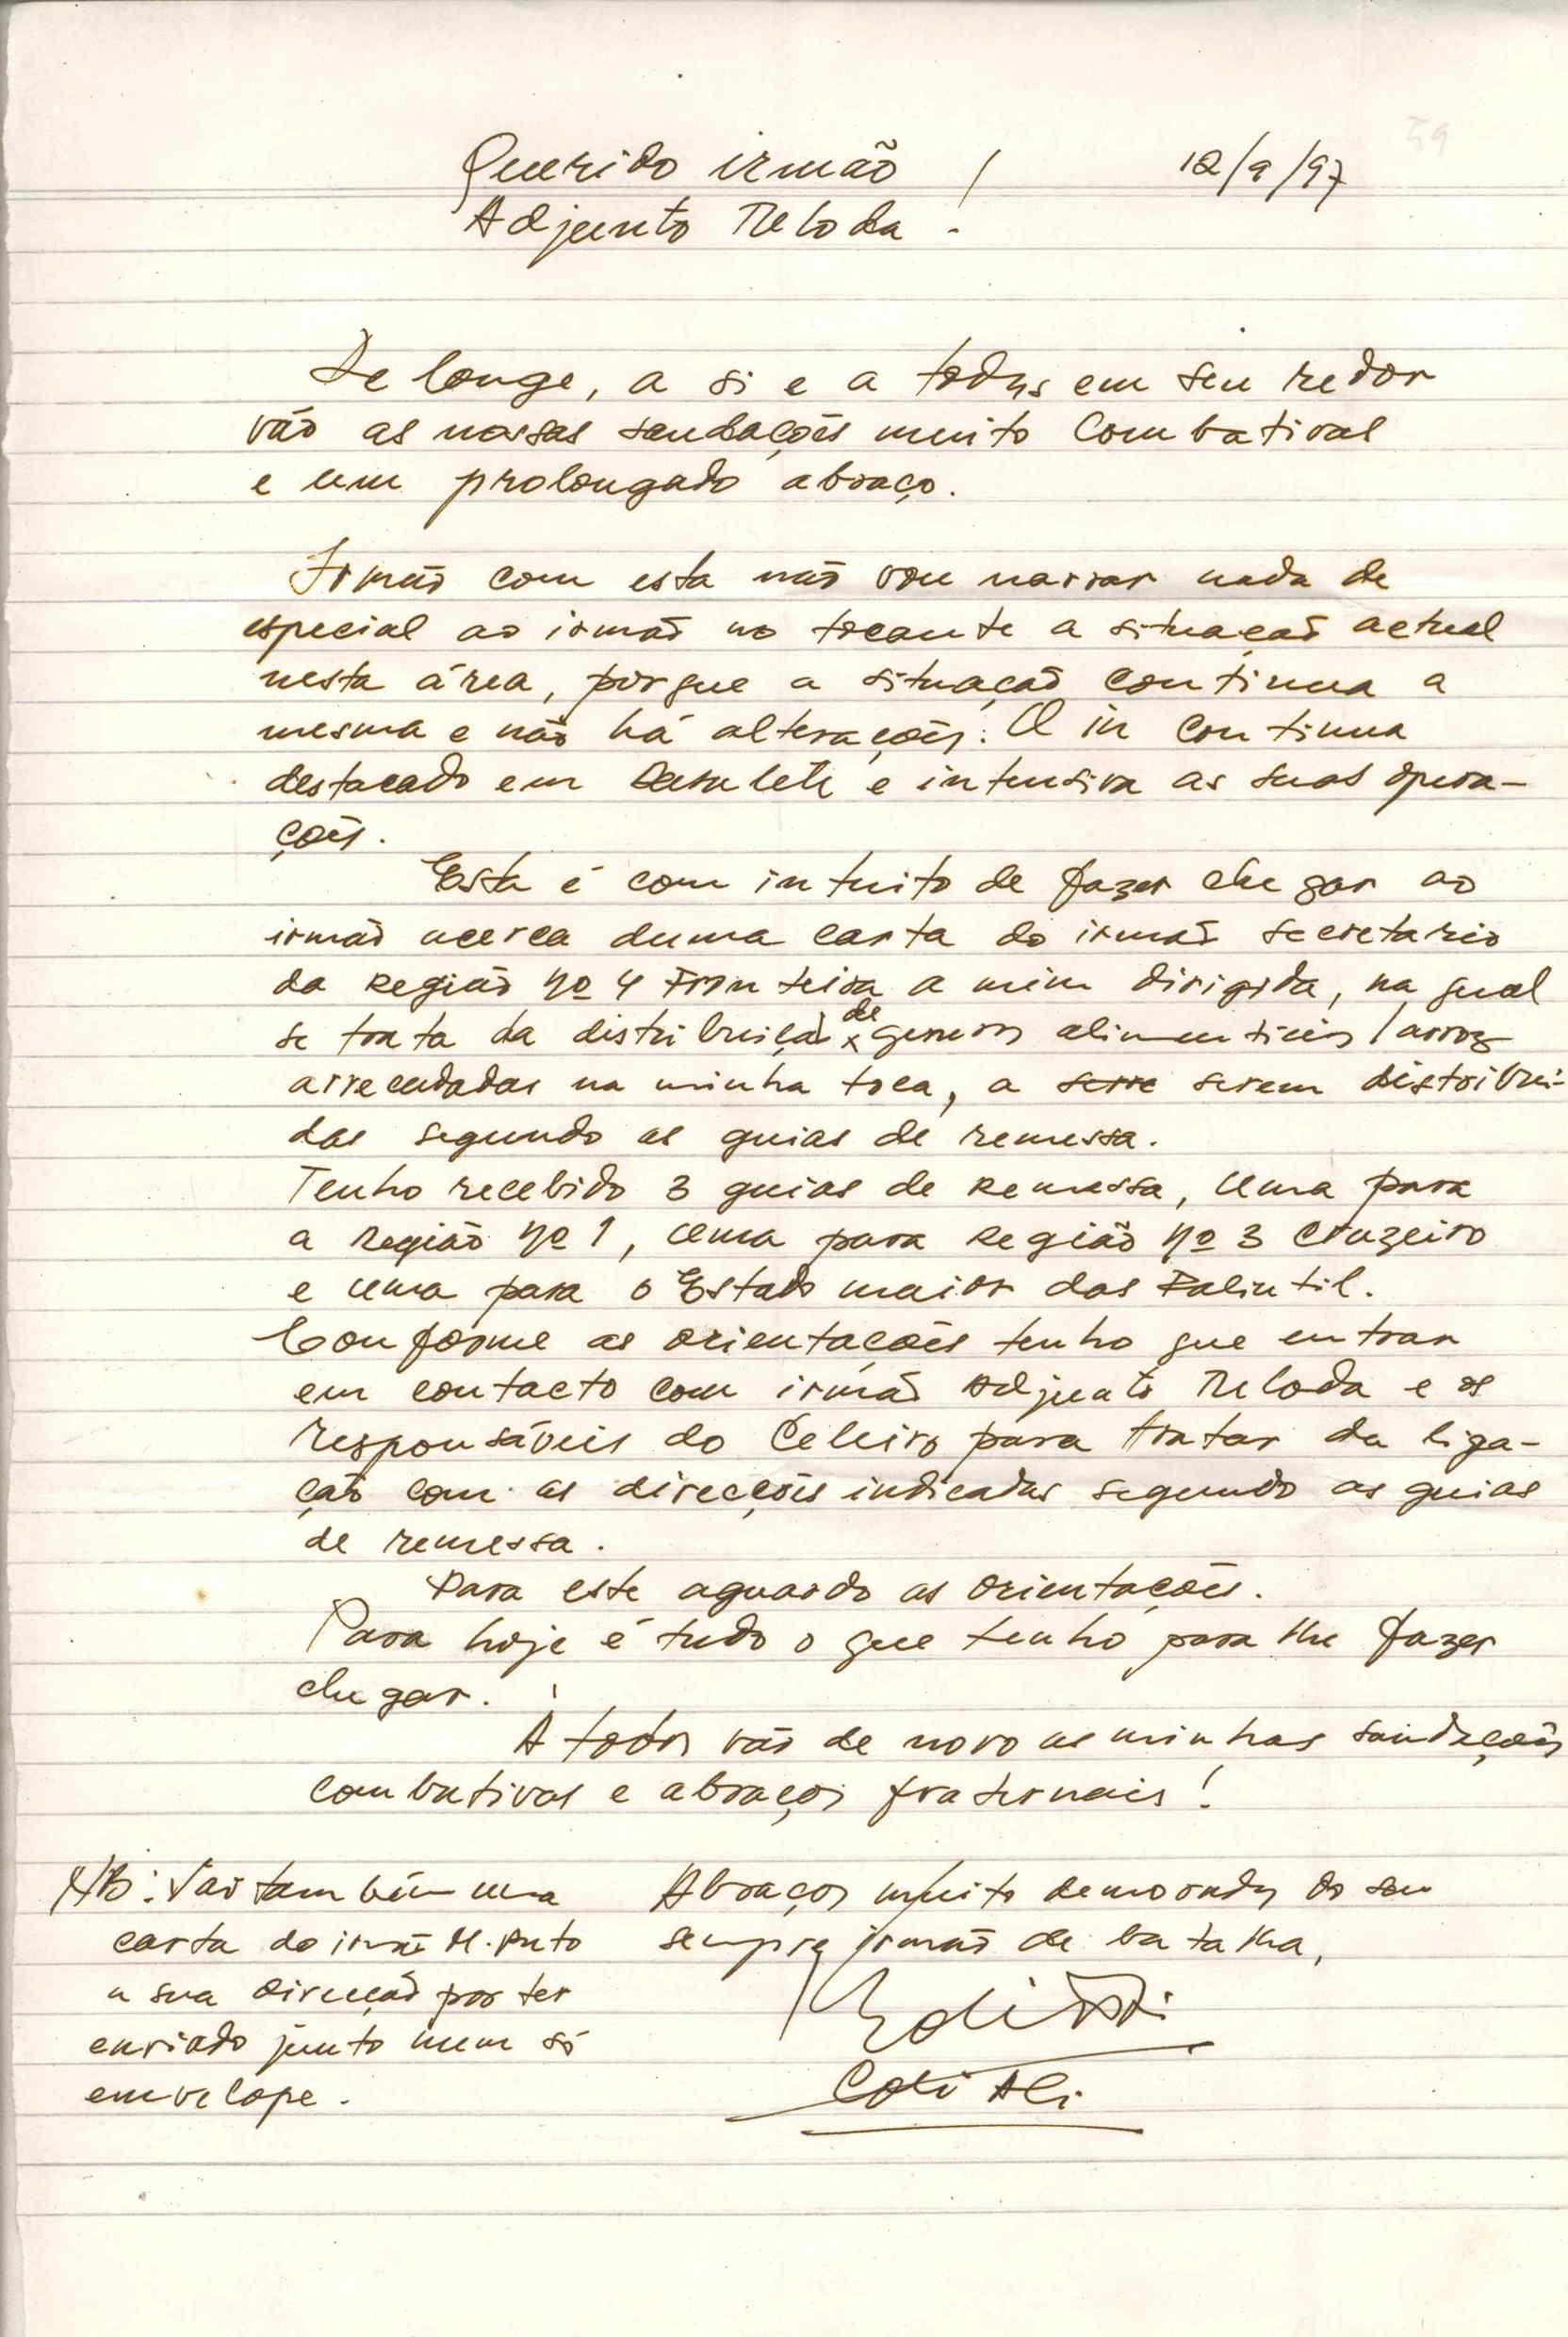 Querido irmão ! 12/9/97
Adjunto Reloda !
De longe, a si e a todos em seu redor
vão as nossas saudações muito combativas
e um prolongado abraço.
Irmão com esta não vou narrar nada de
especial ao irmão no tocante a situação actual
nesta área, porque a situação continua a
mesma e não há alterações. O in continua
destacado em e intensiva as suas opera-
ções.
Esta é com intuito de fazer chegar ao
irmão acerca duma carta do irmão secretario
da Região nº 4 Fronteira a mim dirigida, na qual
se trata da distribuição de generos alimenticios / arroz
arrecadadas na minha toca, a serre serem distribui-
das segundo as guias de remessa.
Tenho recebido 3 guias de Remessa, uma para
a região nº 1, uma para Região nº 3 Cruzeiro
e uma para o Estado maior das Falintil.
Conforme as orientações tenho que entrar
em contacto com irmão Adjunto Reloda e os
responsáveis do Celeiro para tratar da liga-
ção com as direcções indicadas segundo as guias
de remessa.
Para este aguardo as orientações.
Para hoje é tudo o que tenho para lhe fazer
chegar.
A todos vão de novo as minhas saudações
combativas e abraços fraternais !
Abraços muito demorados do seu
sempre irmão de batalha,
Coli Ali
NB: Vai também uma
carta do irmão M. Puto
a sua direcção por ter
enviado junto num só
envelope.
59